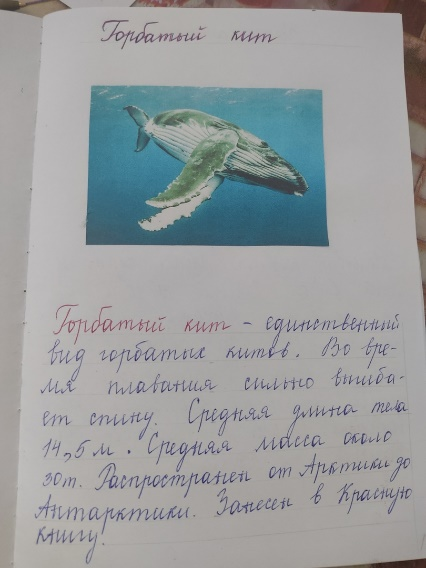 Горбатый кит
Горбатый кит - единственный
вид горбатых китов. Во вре-
мя плавания сильно выгиба-
ет спину. Средняя длина тела
14,5 м. Средняя масса около
30т. Распространен от Арктики до
Антарктики. Занесен в Красную
книгу.